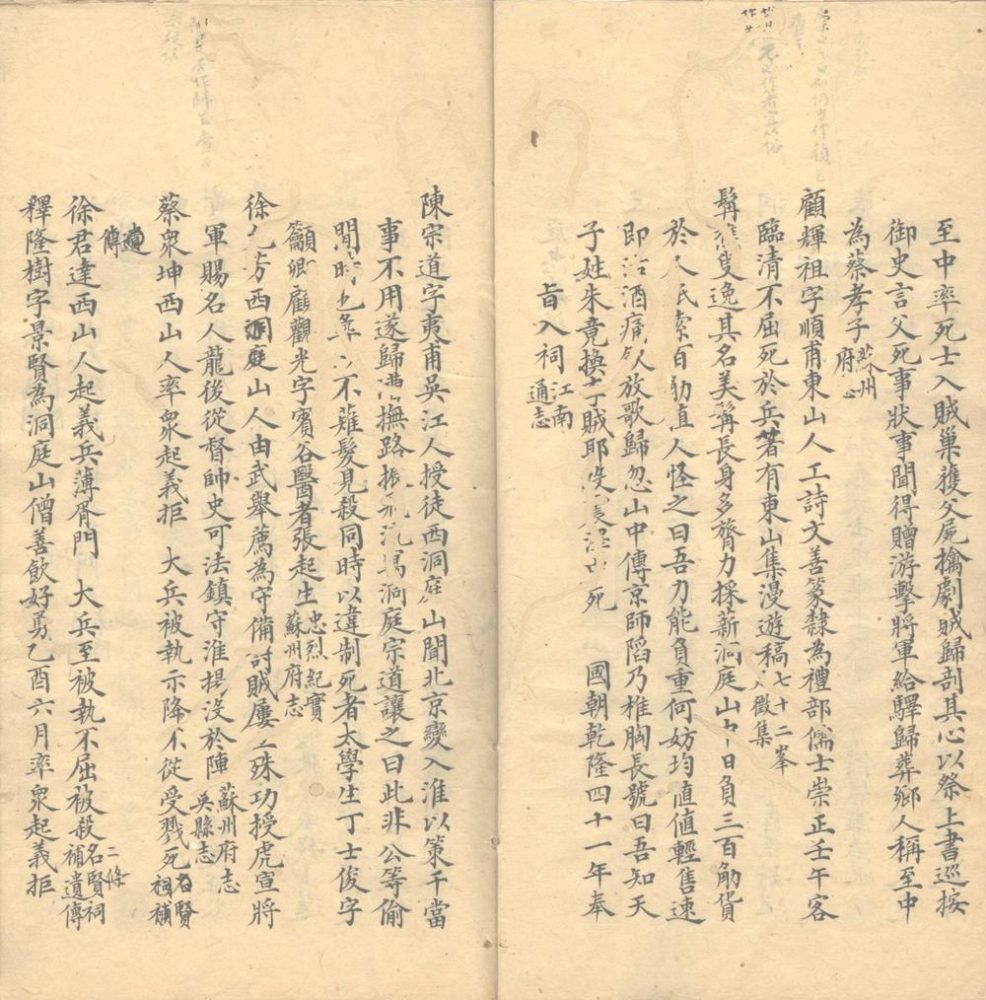 至中率死士入賊巢獲父屍擒劇賊歸剖其心以祭上書巡按
御史言父死事狀事聞得贈游擊將軍給驛歸葬鄉人稱至中
為蔡孝子蘇州府志
顧輝祖字順甫東山人工詩文善篆隸為禮部儒士崇正壬午客
臨清不屈死於兵著有東山集漫遊稿七十二峯徵集
髯隻逸其名美髯長身多膂力採薪洞庭山日負三百觔貨
於人民索百觔直人怪之曰吾力能負重何妨均值值輕售速
即沽酒痛飲放歌歸忽山中傳京師䧟乃椎胸長號曰吾知天
子姓朱竟換賊耶死 國朝乾隆四十一年奉
旨入祠江南通志
陳宗道字夷甫吳江人授徒西洞庭山聞北京變入淮以策干當
事不用遂歸撫路振飛洞庭宗道讓之曰此非公等偷
閒時也不薙髮見殺同時以違制死者太學生丁士俊字
籲卿顧觀光字賓谷醫者張起生忠烈紀實蘇州府志
徐方西洞庭山人由武舉薦為守備討賊屢殊功授虎宣將
軍賜名人龍後從督帥史可法鎮守淮揚沒於陣蘇州府志吳縣志
蔡眾坤西山人率眾起義拒 大兵被執示降不從受戮死名賢祠補
遺傳
徐君達西山人起義兵薄胥門 大兵至被執不屈被殺二條名賢祠補遺傳
釋隆樹字景賢為洞庭山僧善飲好勇乙酉六月率眾起義拒